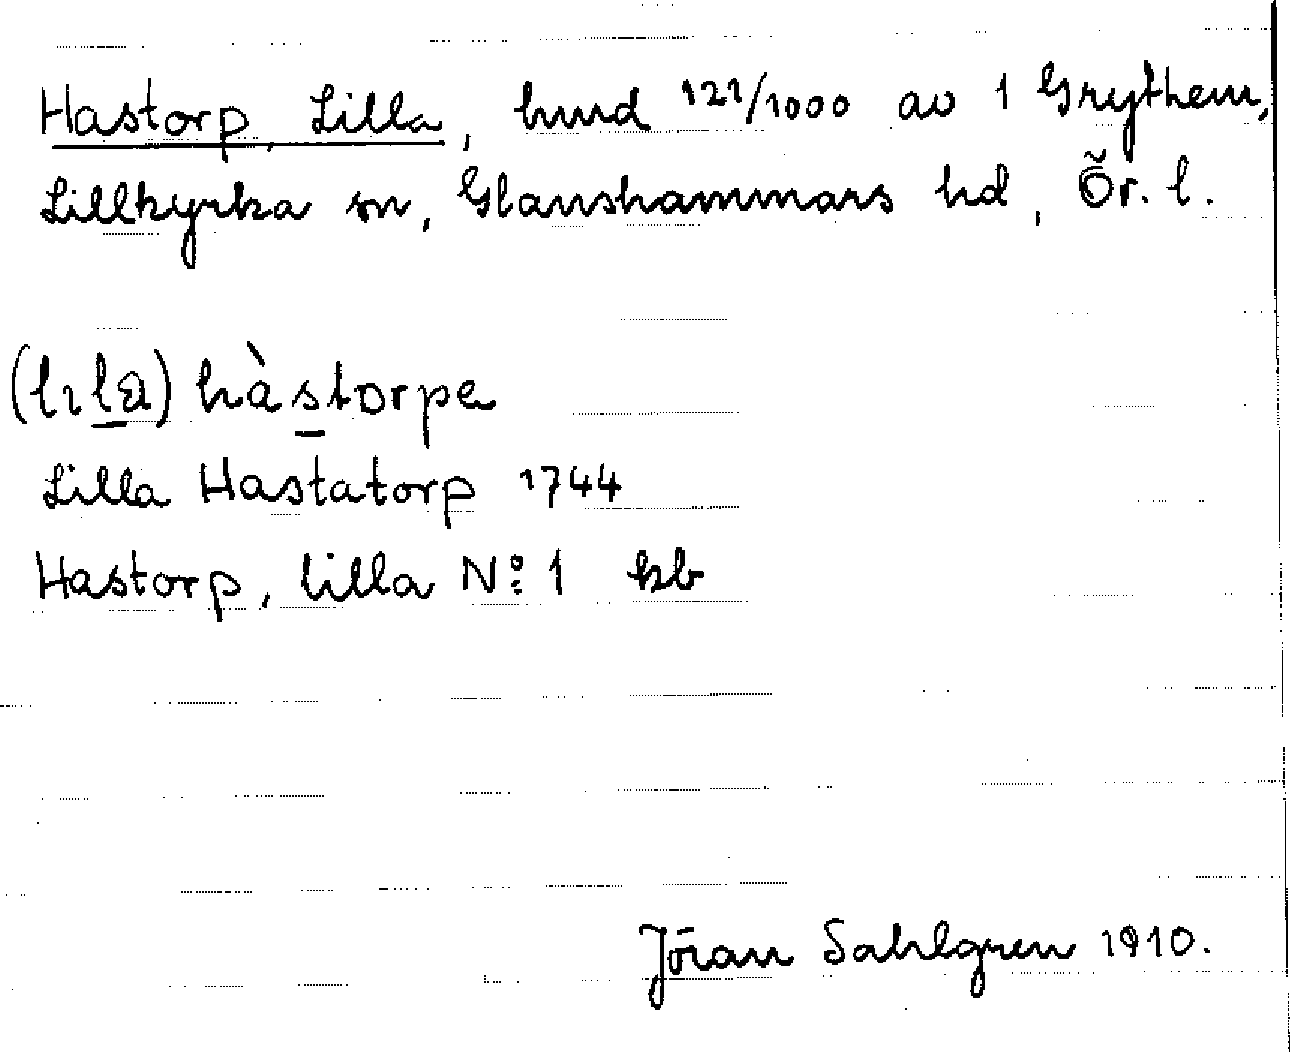 Hastorp, Lilla, hmd 121/1000 av 1 Grythem,
Lillkyrka sn, Glanshammars hd, Ör. l.
(lɩla) hàstorpa
Lilla Hastatorp 1744
Hastorp, lilla Nº 1 kb
Jöran Sahlgren 1910.